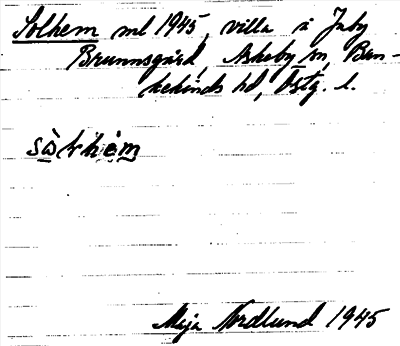 Solhem ml 1945, villa å Juby
Brunnsgård, Askeby sn, Ban-
kekinds hd, Östg. l.
sòlhèm
Maja Nordlund 1945